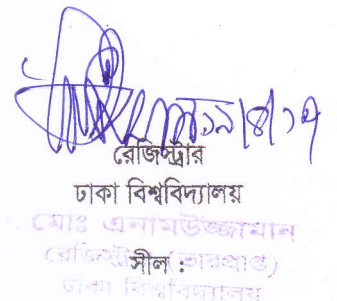 ১৯|৪|১৭
রেজিস্ট্রার
ঢাকা বিশ্ববিদ্যালয়
মোঃ এনামউজ্জামান
রেজিস্ট্রার (ভারপ্রাপ্ত)
সীল :
ঢাকা বিশ্ববিদ্যালয়